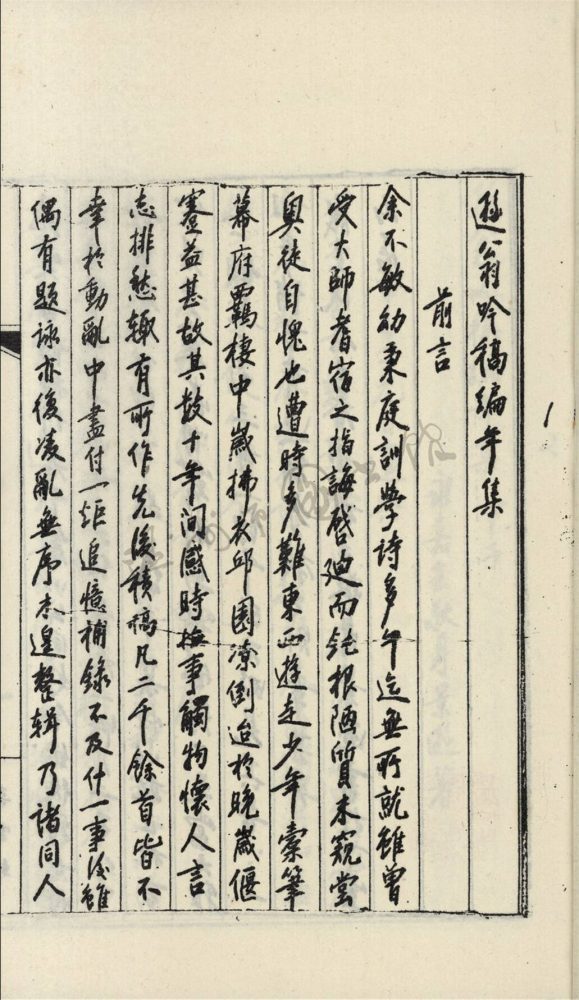 遯翁吟稿編年集
1
前言
余不敏幼秉庭訓學詩多年迄無所就雖曾
受大師耆宿之指誨啓廸而鈍根陋質未窺堂
奧徒自愧也遭時多難東西遊走少年橐筆
幕府羈棲中歲拂衣邱園潦倒迨於晚歲偃
蹇益甚故其數十年间感時撫事觸物懷人言
志排愁輒有所作先後積稿凡二千餘首皆不
幸於動亂中盡付一炬追憶補錄不及什一事後雖
偶有題詠亦復凌亂無序未遑整輯乃諸同人